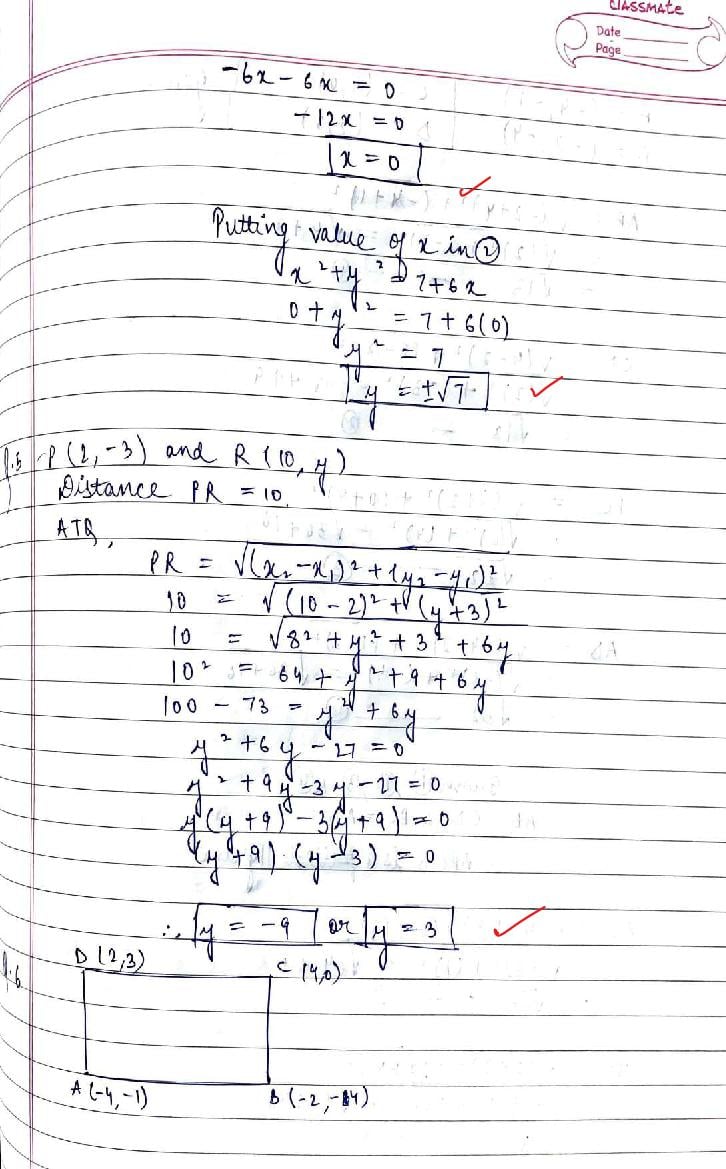 CLASSMATE
Date
Page
-6x - 6x = 0
-12x = 0
x = 0
Putting value of x in ②
x² + y² = 7+6x
0 + y² = 7 + 6(0)
y² = 7
y = ±√7
Q.5 P (2, -3) and R (10, y)
Distance PR = 10
ATQ,
PR = √(x₂-x₁)² + (y₂-y₁)²
10 = √(10-2)² + (y+3)²
10 = √8² + y² + 3² + 6y
10² = 64 + y² + 9 + 6y
100 - 73 = y² + 6y
y² + 6y - 27 = 0
y² + 9y - 3y - 27 = 0
y(y+9) - 3(y+9) = 0
(y+9) (y-3) = 0
∴ y = -9 or y = 3
Q.6
D (2,3) C (4,0)
A (-4,-1) B (-2,-4)